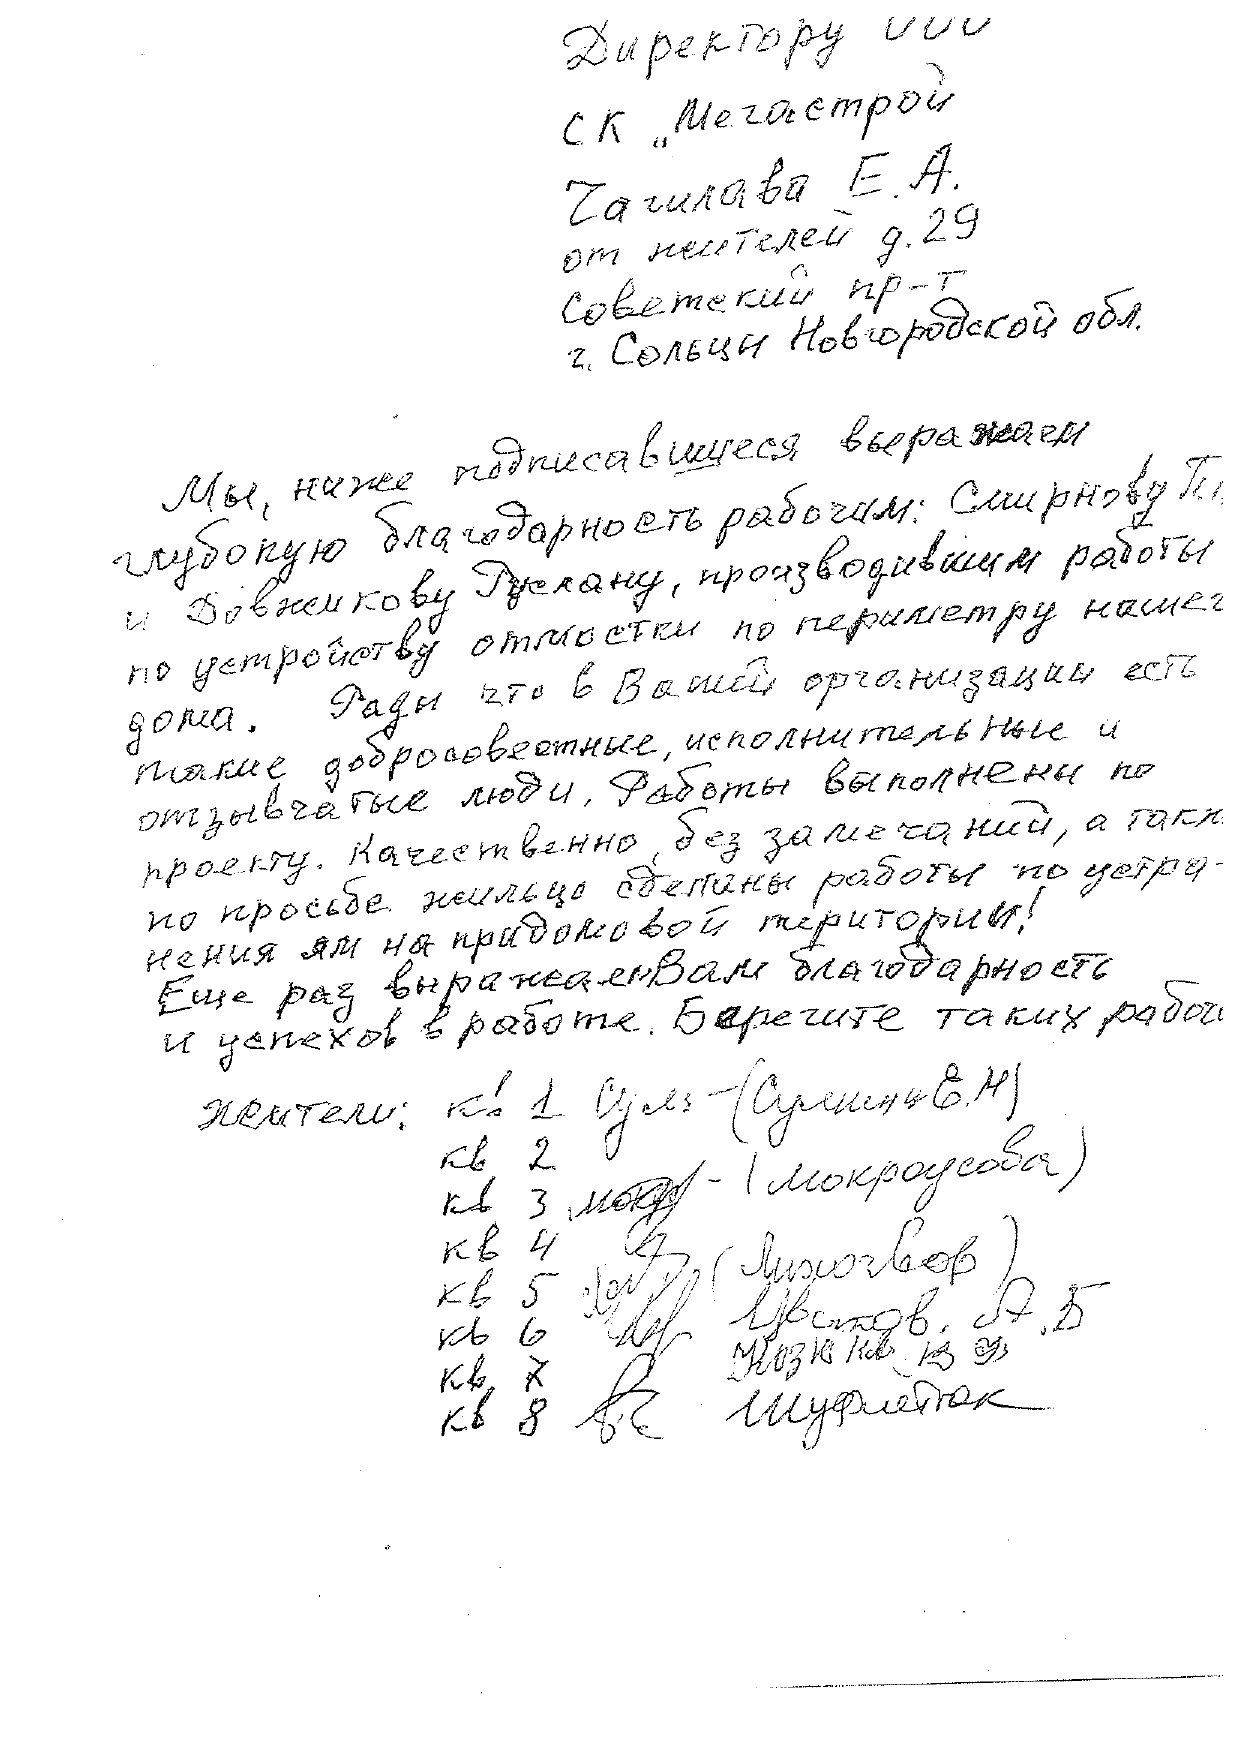 Директору ООО
СК „Мегастрой
Чагилава Е.А.
от жителей д.29
Советский пр-т
г. Сольцы Новгородской обл.
Мы, ниже подписавшиеся выражаем
глубокую благодарность рабочим: Смирнову
и Довжикову Руслану, производившим работы
по устройству отмостки по периметру нашег
дома. Рады что в Вашей организации есть
такие добросовестные, исполнительные и
отзывчатые люди. Работы выполнены по
проекту. Качественно, без замечаний, а такж
по просьбе жильцо сделаны работы по устра-
нения ям на придомовой територии!
Еще раз выражаем Вам благодарность
и успехов в работе. Берегите таких рабочи
жители: кв. 1
кв 2
кв 3 (Мокроусова)
кв 4
кв 5 (Лихогвор)
кв 6 Цветков. А.Б
кв. 7
кв 8